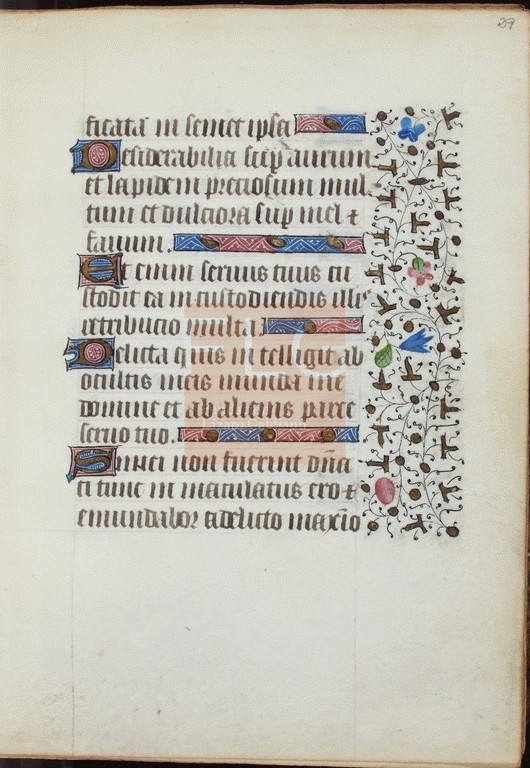 29
ficata in semet ipsa
Desiderabilia sup aurum
et lapidem preciosum mul
tum et dulciora sup mel ⁊
fauum.
Et enim seruus tuus cu
stodit ea in custodiendis illis
retributio multa.
Delicta quis in telligit ab
ocultis meis munda me
domine et ab alienis parce
seruo tuo.
Si mei non fuerint dn̄a
ti tunc in maculatus ero ⁊
emundabor adelicto maxīo